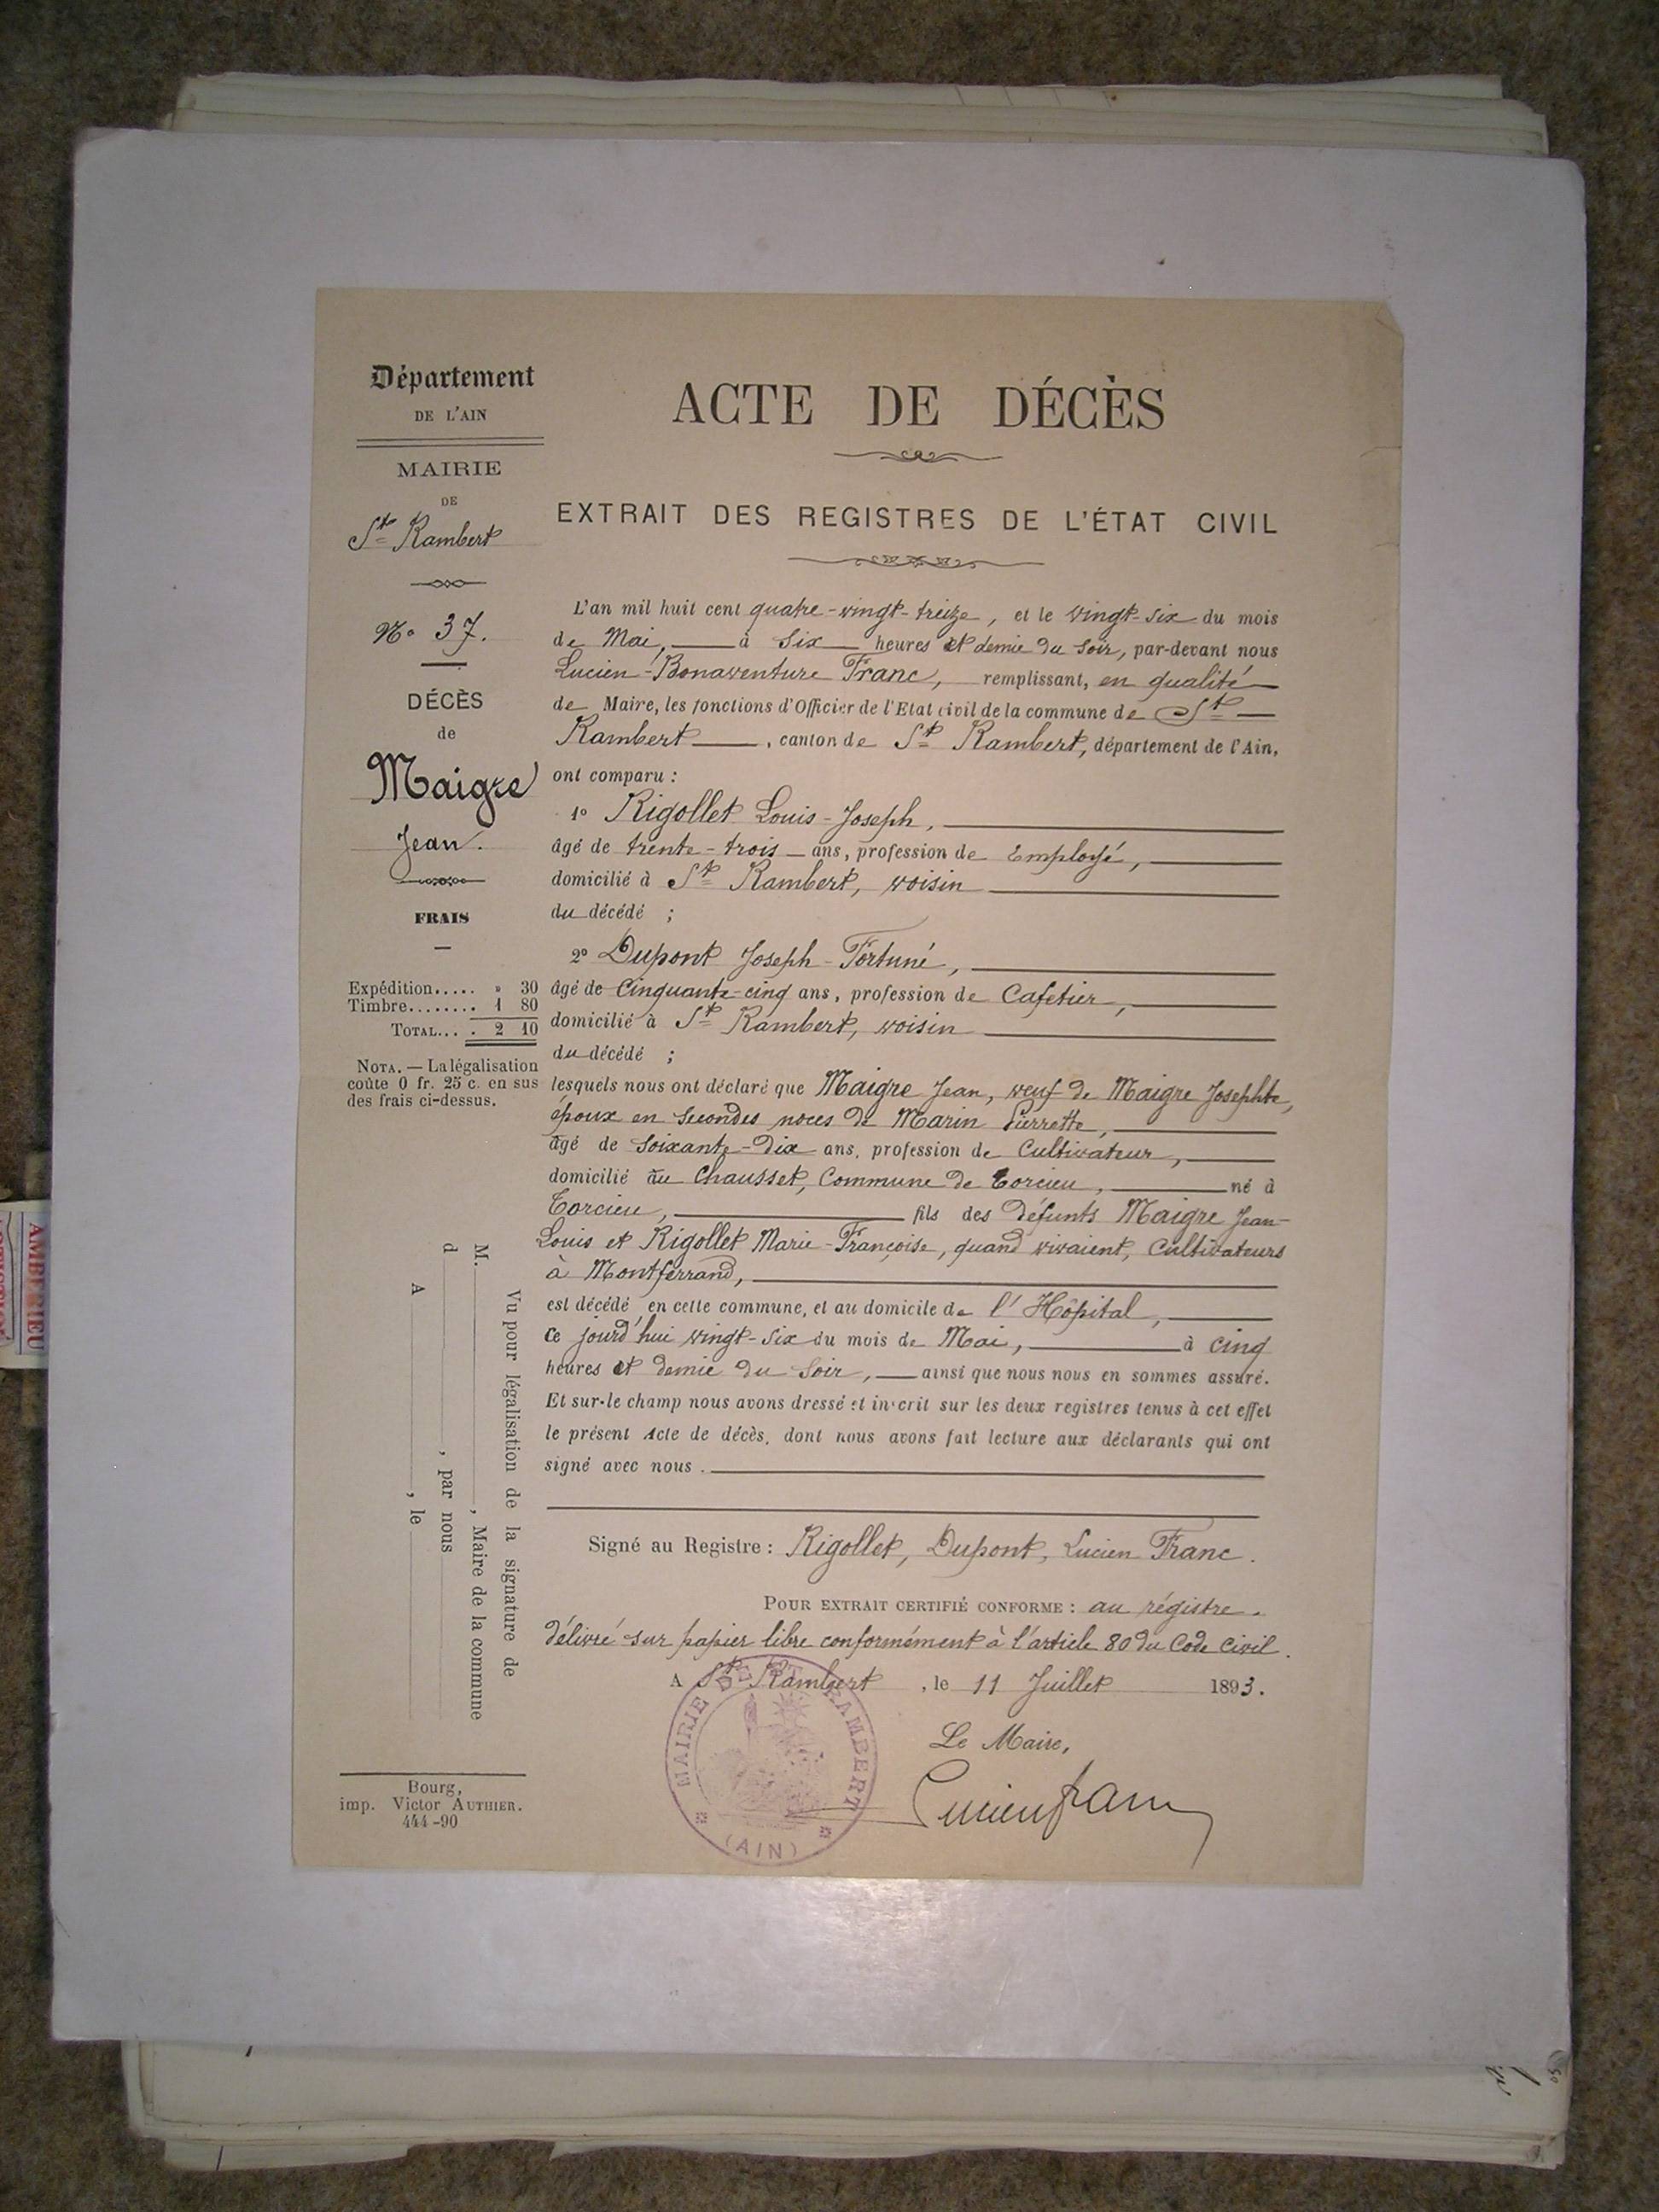 Département
DE L'AIN
MAIRIE
DE
St Rambert
No 37.
DÉCÈS
de
Maigre
Jean.
FRAIS
Expédition..... » 30
Timbre........ 1 80
TOTAL.... 2 10
NOTA. — La légalisation
coûte 0 fr. 25 c. en sus
des frais ci-dessus.
ACTE DE DÉCÈS
EXTRAIT DES REGISTRES DE L'ÉTAT CIVIL
L'an mil huit cent quatre-vingt-treize, et le vingt-six du mois
de Mai, à six heures et demie du soir, par-devant nous
Lucien-Bonaventure Franc, remplissant, en qualité
de Maire, les fonctions d'Officier de l'Etat civil de la commune de St
Rambert, canton de St Rambert, département de l'Ain,
ont comparu :
1o Rigollet Louis-Joseph,
âgé de trente-trois ans, profession de Employé,
domicilié à St Rambert, voisin
du décédé ;
2o Dupont Joseph-Fortuné,
âgé de Cinquante-cinq ans, profession de Cafetier,
domicilié à St Rambert, voisin
du décédé ;
lesquels nous ont déclaré que Maigre Jean, veuf de Maigre Josephte,
époux en secondes noces de Marin Pierrette,
âgé de soixante-dix ans, profession de Cultivateur,
domicilié au Chausset, Commune de Torcieu, né à
Torcieu, fils des défunts Maigre Jean-
Louis et Rigollet Marie-Françoise, quand vivaient, Cultivateurs
à Montferrand,
est décédé en cette commune, et au domicile de l'Hôpital,
ce jourd'hui vingt-six du mois de Mai, à cinq
heures et demie du soir, ainsi que nous nous en sommes assuré.
Et sur-le champ nous avons dressé et inscrit sur les deux registres tenus à cet effet
le présent Acte de décès, dont nous avons fait lecture aux déclarants qui ont
signé avec nous.
Signé au Registre : Rigollet, Dupont, Lucien Franc.
POUR EXTRAIT CERTIFIÉ CONFORME : au régistre.
délivré sur papier libre conformément à l'article 80 du Code Civil.
A St Rambert, le 11 Juillet 1893.
Le Maire,
Lucien Franc
MAIRIE DE ST RAMBERT
(AIN)
Vu pour légalisation de la signature de
M. , Maire de la commune
d , par nous
A , le
Bourg,
imp. Victor AUTHIER.
444-90
AMBÉRIEU